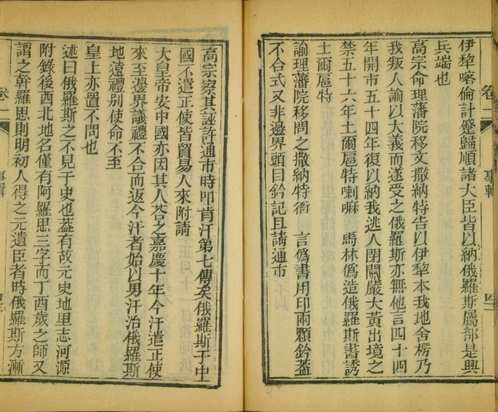 伊犁喀倫計蹙歸順諸大臣皆以納俄羅斯屬部是興
兵端也
高宗命理藩院移文撒納特告以伊犁本我地舍楞乃
我叛人諭以大義而遂受之俄羅斯亦無他言四十四
年開市五十四年復以納我逃人閉關嚴大黃出境之
禁五十六年土爾扈特喇嘛 馬林僞造俄羅斯書誘
土爾扈特
諭理藩院移問之撒納特衙 言僞書用印兩顆鈐蓋
不合式又非邊界頭目鈐記且請通市
高宗察其誠許通市時叩肯汗第七傳矣俄羅斯于中
國不遣正使皆貿易人來附請
大皇帝安中國亦因其人荅之嘉慶十年今汗遣正使
來至邊界議禮不合而返今汗者始以男汗治俄羅斯
地遠禮別使命不至
皇上亦置不問也
述曰俄羅斯之不見于史也葢有故元史地里志河源
附錄後西北地名僅有阿羅思三字而丁酉歲之師又
謂之斡羅思則明初人得之元遺臣者時俄羅斯方漸